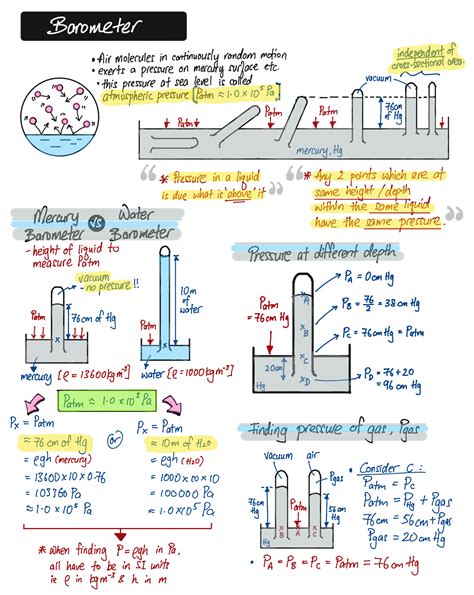 Barometer
• Air molecules in continuously random motion
• exerts a pressure on mercury surface etc.
• this pressure at sea level is called
atmospheric pressure [Patm ≈ 1.0 × 10⁵ Pa]
independent of
cross-sectional area
vacuum
Patm
Patm
Patm
76cm of Hg
Patm
mercury, Hg
" * Pressure in a liquid
is due what is 'above' it "
" * Any 2 points which are at
same height/depth
within the same liquid
have the same pressure. "
Mercury Barometer vs Water Barometer
- height of liquid to
measure Patm
vacuum
- no pressure !!
Patm
76cm of Hg
x
10m of water
Patm
x
mercury [ρ = 13600 kgm⁻³]
water [ρ = 1000 kgm⁻³]
Patm ≈ 1.0 × 10⁵ Pa
Px = Patm
≈ 76 cm of Hg
= ρgh (mercury)
= 13600 × 10 × 0.76
= 103360 Pa
≈ 1.0 × 10⁵ Pa
or
Px = Patm
≈ 10m of H₂O
= ρgh (H₂O)
= 1000 × 10 × 10
= 100000 Pa
≈ 1.0 × 10⁵ Pa
* when finding P = ρgh in Pa,
all have to be in SI units
is ρ in kgm⁻³ & h in m
Pressure at different depth
Patm
= 76cm Hg
20cm
xA
xB
xC
xD
PA = 0cm Hg
PB = 76/2 = 38cm Hg
PC = 76cm Hg = Patm
PD = 76 + 20
= 96 cm Hg
Finding pressure of gas, Pgas
vacuum
air
76cm
Hg
Pgas
56cm
Hg
Patm
x
B
x
A
x
C
• Consider C :
Patm = PC
Patm = PHg + Pgas
76cm = 56cm + Pgas
Pgas = 20cm Hg
• PA = PB = PC = Patm = 76cm Hg